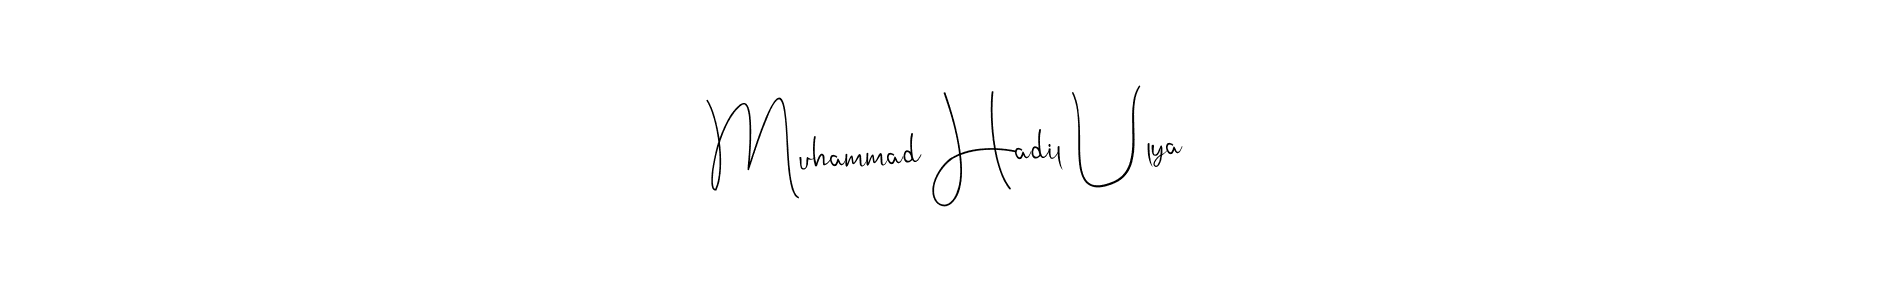 Muhammad Hadil Ulya